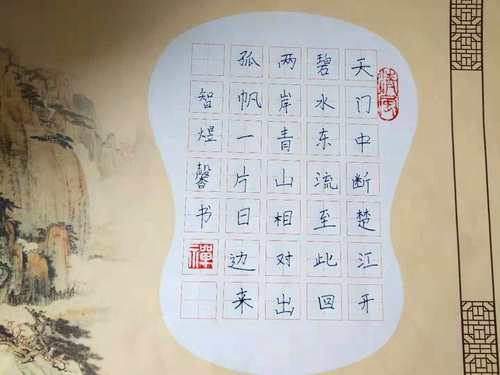 天门中断楚江开
碧水东流至此回
两岸青山相对出
孤帆一片日边来
智煜馨书
禅